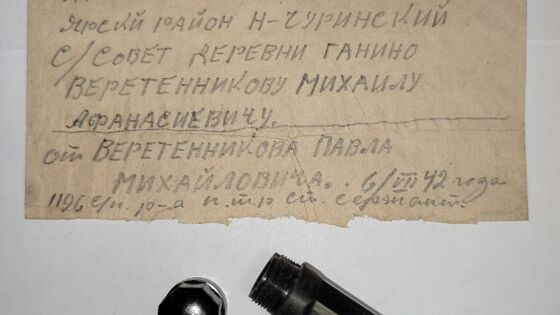 Ярский район Н-Чуринский
с/совет деревни Ганино
Веретенникову Михаилу
Афанасиевичу.
от Веретенникова Павла
Михайловича.. 6/VII 42 года
1196 с/п. р-а п.т.р ст. сержант.